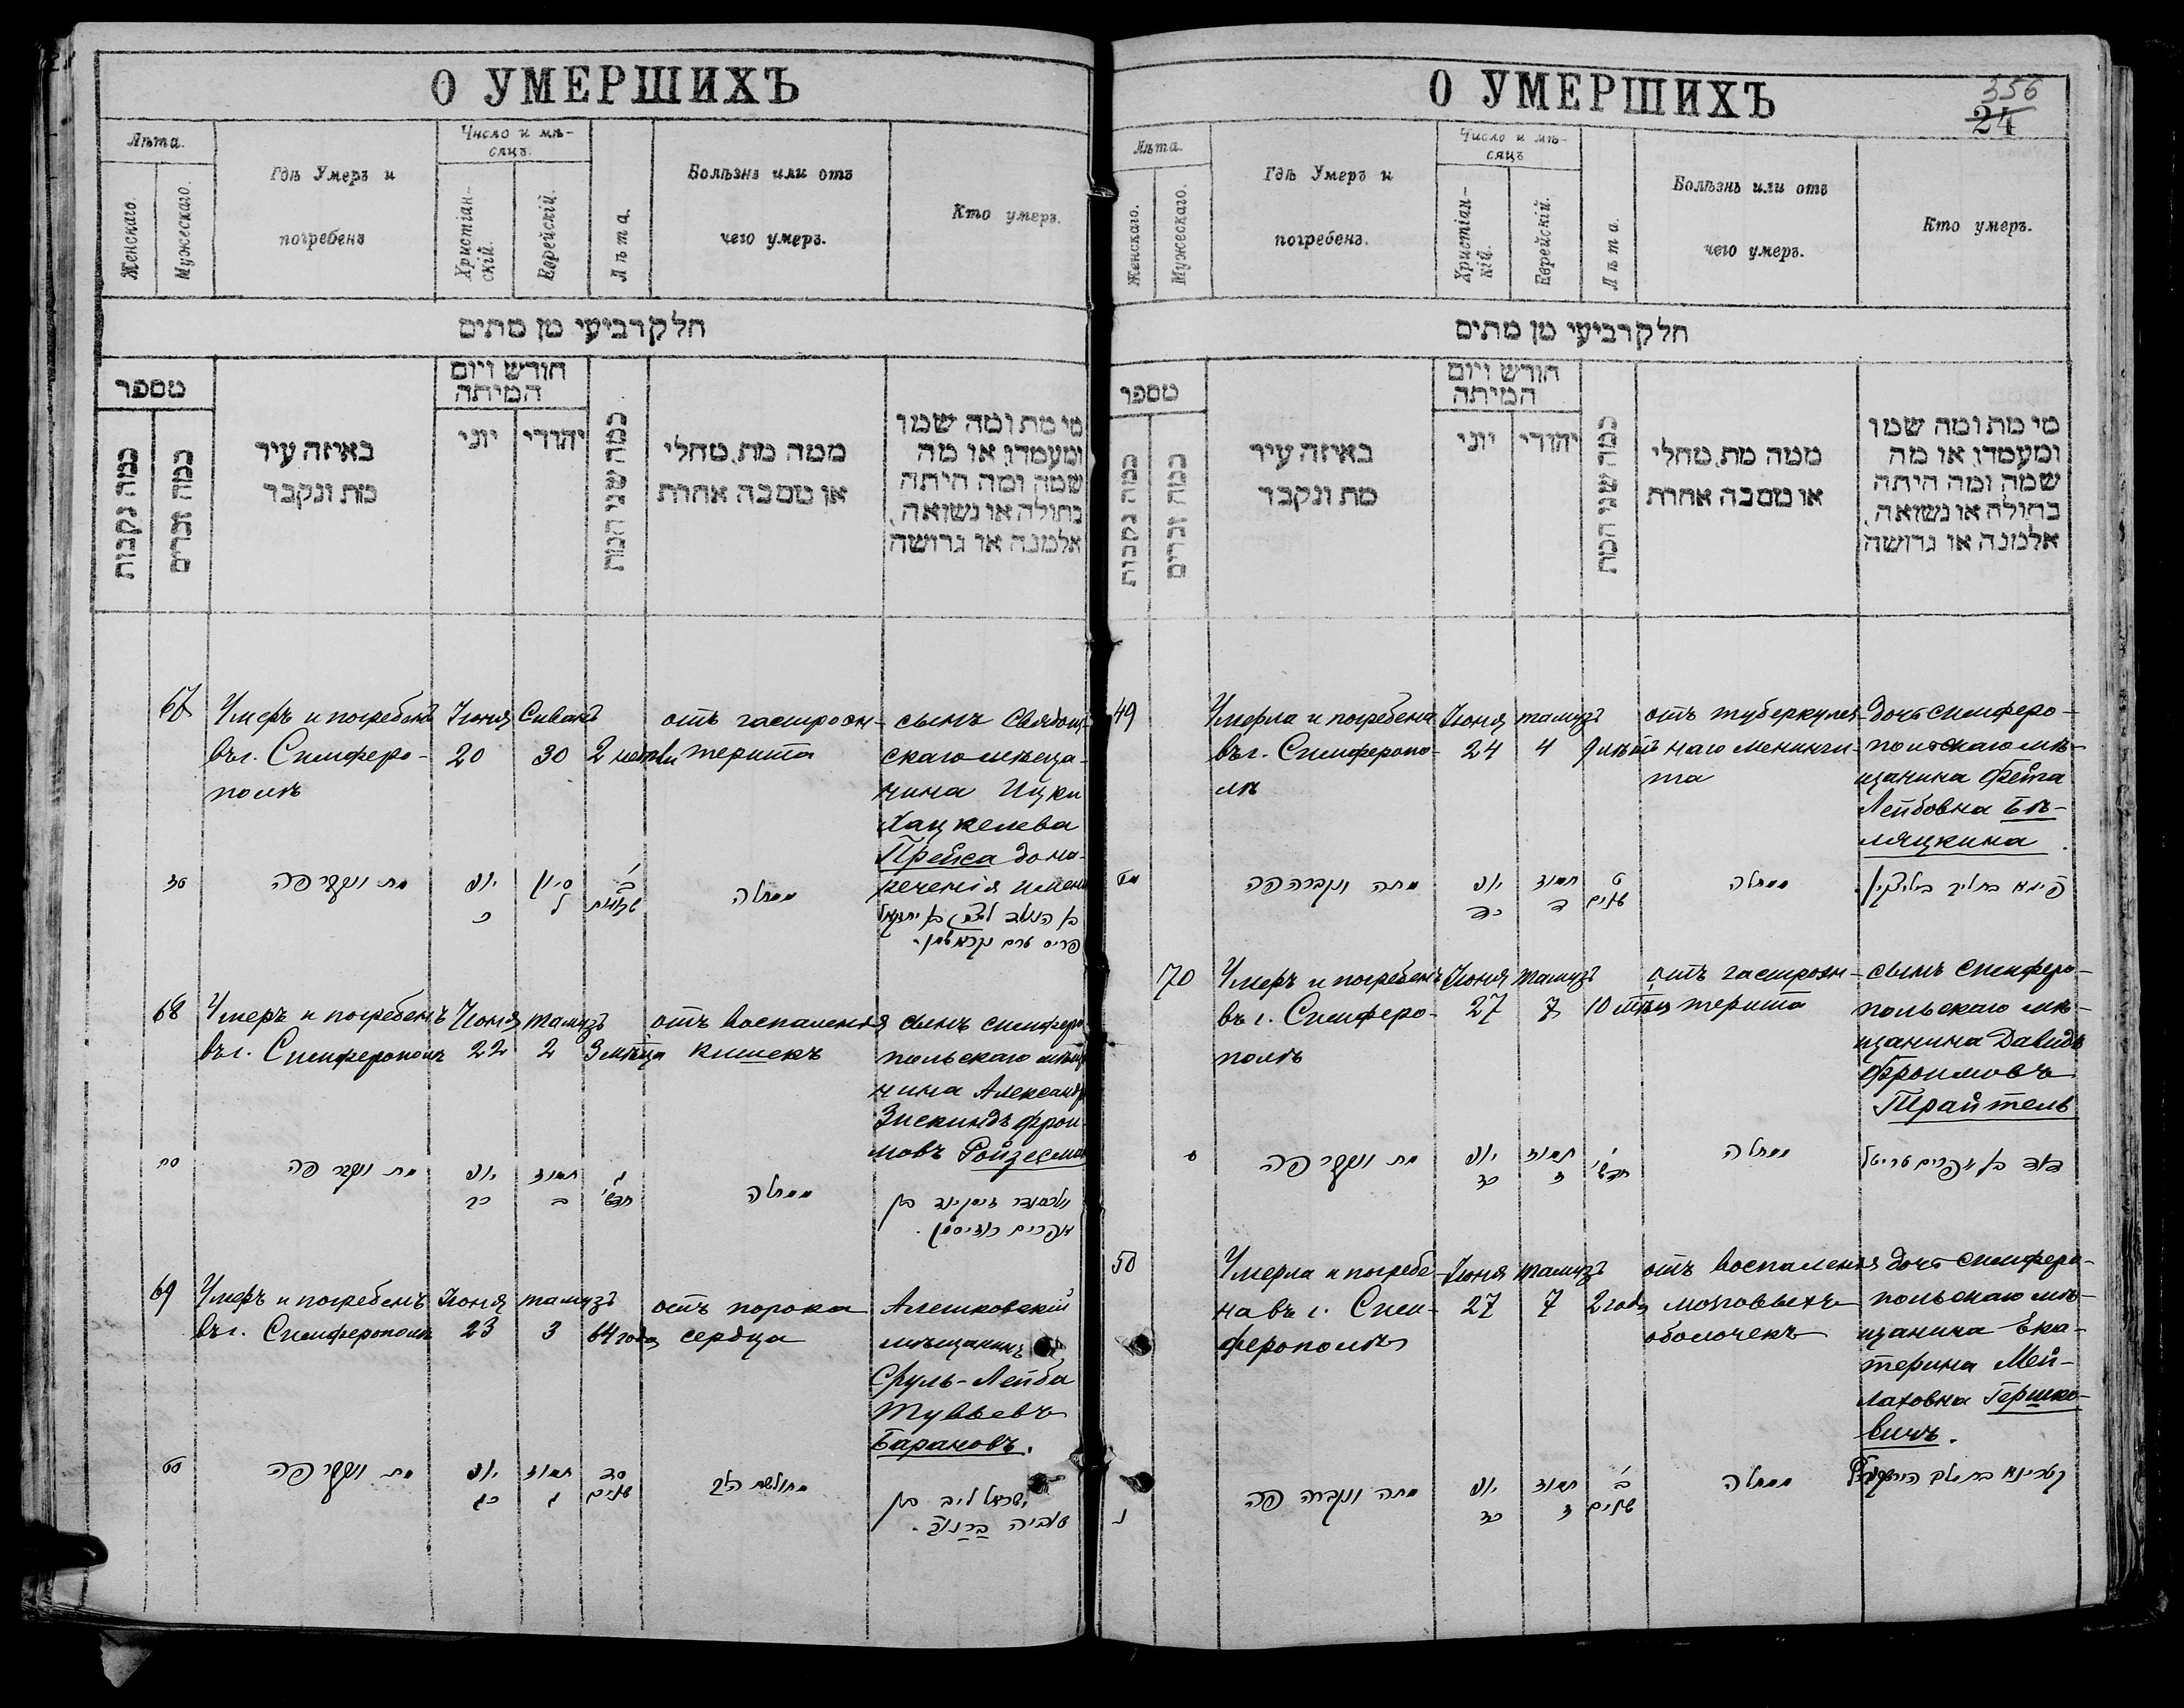 О УМЕРШИХЪ
Лѣта.
Женскаго.
Мужескаго.
Гдѣ Умеръ и
погребенъ
Число и мѣ-
сяцъ.
Христіан-
скій.
Еврейскій.
Лѣта.
Болѣзнь или отъ
чего умеръ.
Кто умеръ.
חלק רביעי מן מתים
מספר
כמה נקבות
כמה זכרים
באיזה עיר
מת ונקבר
חודש ויום
המיתה
יוני
יהודי
כמה שני המת
ממה מת, מחלי
או מסבה אחרת
מי מת ומה שמו
ומעמדו, או מה
שמה ומה היתה
בתולה או נשואה,
אלמנה או גרושה
67
Умеръ и погребенъ
въ г. Симферо-
полѣ
Іюня
20
Сивань
30
2 недѣли
отъ гастроэн-
терита
сынъ
скаго мѣща-
нина Ицки
Хацкелева
Прейса до на-
реченія имени
סז
מת ונקבר פה
יוני
כ
סיון
ל
ב
שבועות
מחלה
בן הנולד לאיצק בן יחזקאל
פרייס טרם נקרא שמו.
68
Умеръ и погребенъ
въ г. Симферополѣ
Іюня
22
тамузъ
2
3 мѣсяца
отъ воспаленія
кишекъ
сынъ симферо
польскаго мѣща
нина Александръ
Зискиндъ Фрои-
мовъ Ройзесман
סח
מת ונקבר פה
יוני
כב
תמוז
ב
ג
חדשי'
מחלה
אלכסנדר זיסקינד בן
אפרים רויזיסמן.
69
Умеръ и погребенъ
въ г. Симферополѣ
Іюня
23
тамузъ
3
64 года
отъ порока
сердца
Алешковскій
мѣщанинъ
Сруль-Лейба
Тувьевъ
Барановъ.
סט
מת ונקבר פה
יוני
כג
תמוז
ג
סד
שנים
מחולשת הלב
ישראל ליב בן
טוביה ברנוב.
О УМЕРШИХЪ
356
24
Лѣта.
Женскаго.
Мужескаго.
Гдѣ Умеръ и
погребенъ.
Число и мѣ-
сяцъ
Христіан-
кій.
Еврейскій.
Лѣта.
Болѣзнь или отъ
чего умеръ.
Кто умеръ.
חלק רביעי מן מתים
מספר
כמה נקבות
כמה זכרים
באיזה עיר
מת ונקבר
חודש ויום
המיתה
יוני
יהודי
כמה שני המת
ממה מת, מחלי
או מסבה אחרת
מי מת ומה שמו
ומעמדו, או מה
שמה ומה היתה
בתולה או נשואה,
אלמנה או גרושה
49
Умерла и погребена
въ г. Симферопо-
лѣ
Іюня
24
тамузъ
4
9 лѣтъ
отъ туберкулез-
наго менинги-
та
дочь симферо-
польскаго мѣ-
щанина Фейга
Лейбовна Бѣ-
ляцкина.
מט
מתה ונקברה פה
יוני
כד
תמוז
ד
ט
שנים
מחלה
פייגא בת ליב ביליצקין.
70
Умеръ и погребенъ
въ г. Симферо-
полѣ
Іюня
27
тамузъ
7
10 мѣсяц
отъ гастроэн-
терита
сынъ симферо-
польскаго мѣ-
щанина Давидъ
Фроимовъ
Трайтель
ע
מת ונקבר פה
יוני
כז
תמוז
ז
י
חדשי'
מחלה
דוד בן אפרים טריטל
50
Умерла и погребе-
на въ г. Сим-
ферополѣ
Іюня
27
тамузъ
7
2 года
отъ воспаленія
мозговыхъ
оболочекъ
дочь симферо-
польскаго мѣ-
щанина Ека-
терина Мей-
лаховна Гершко-
вичъ.
נ
מתה ונקברה פה
יוני
כז
תמוז
ז
ב
שנים
מחלה